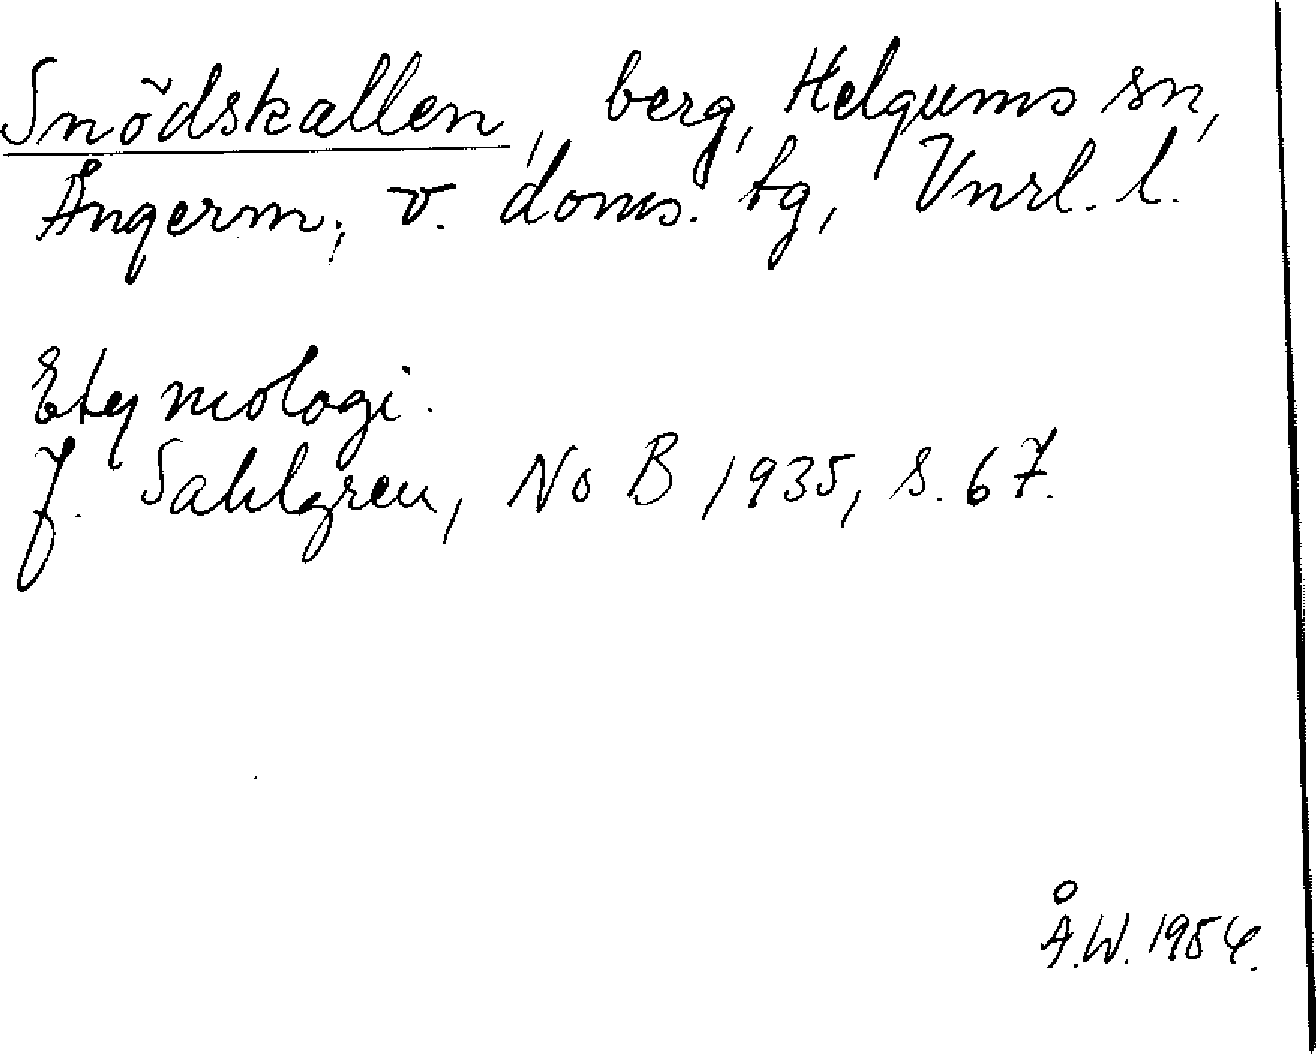 Snödskallen, berg, Helgums sn,
Ångerm., v. doms. tg, Vnrl. l.
Etymologi.
J. Sahlgren, NoB 1935, s. 67.
Å.W. 1954.